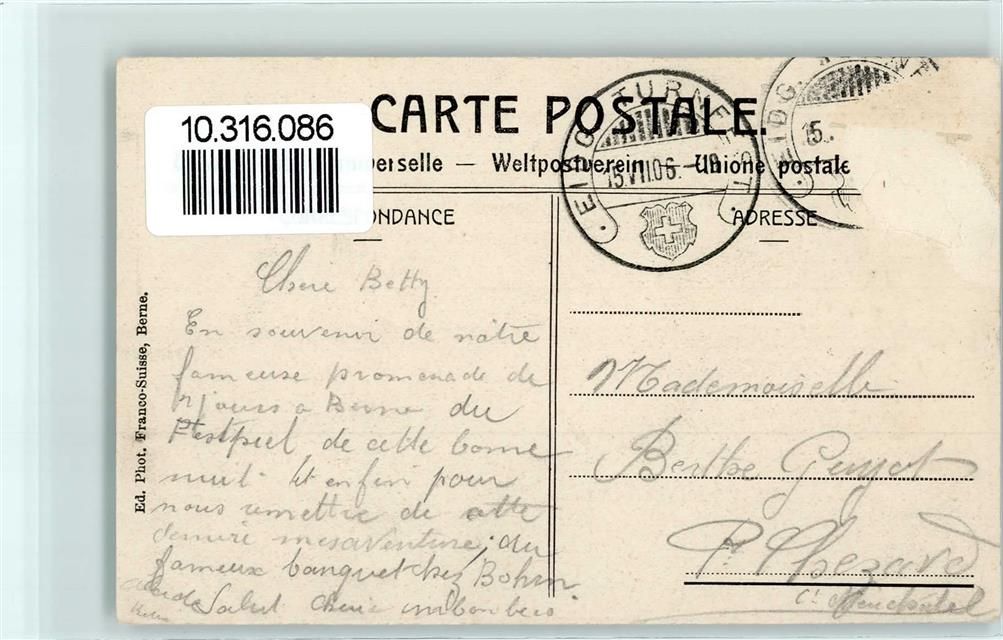 10.316.086
CARTE POSTALE.
verselle — Weltpostverein — Unione postale
EIDG. TURNFEST.
15.VII.06.
EIDG.
15.
ONDANCE
ADRESSE
Ed. Phot. Franco-Suisse, Berne.
Chère Betty
En souvenir de nôtre
fameuse promenade de
2 jours a Berne du
Festpiel de cette bonne
nuit et enfin pour
nous remettre de cette
dernière mesaventure, du
fameux banquet chez Böhm.
Salut chérie un bon
Mademoiselle
Berthe Guyot
Pt. Chezard
Ct. Neuchâtel